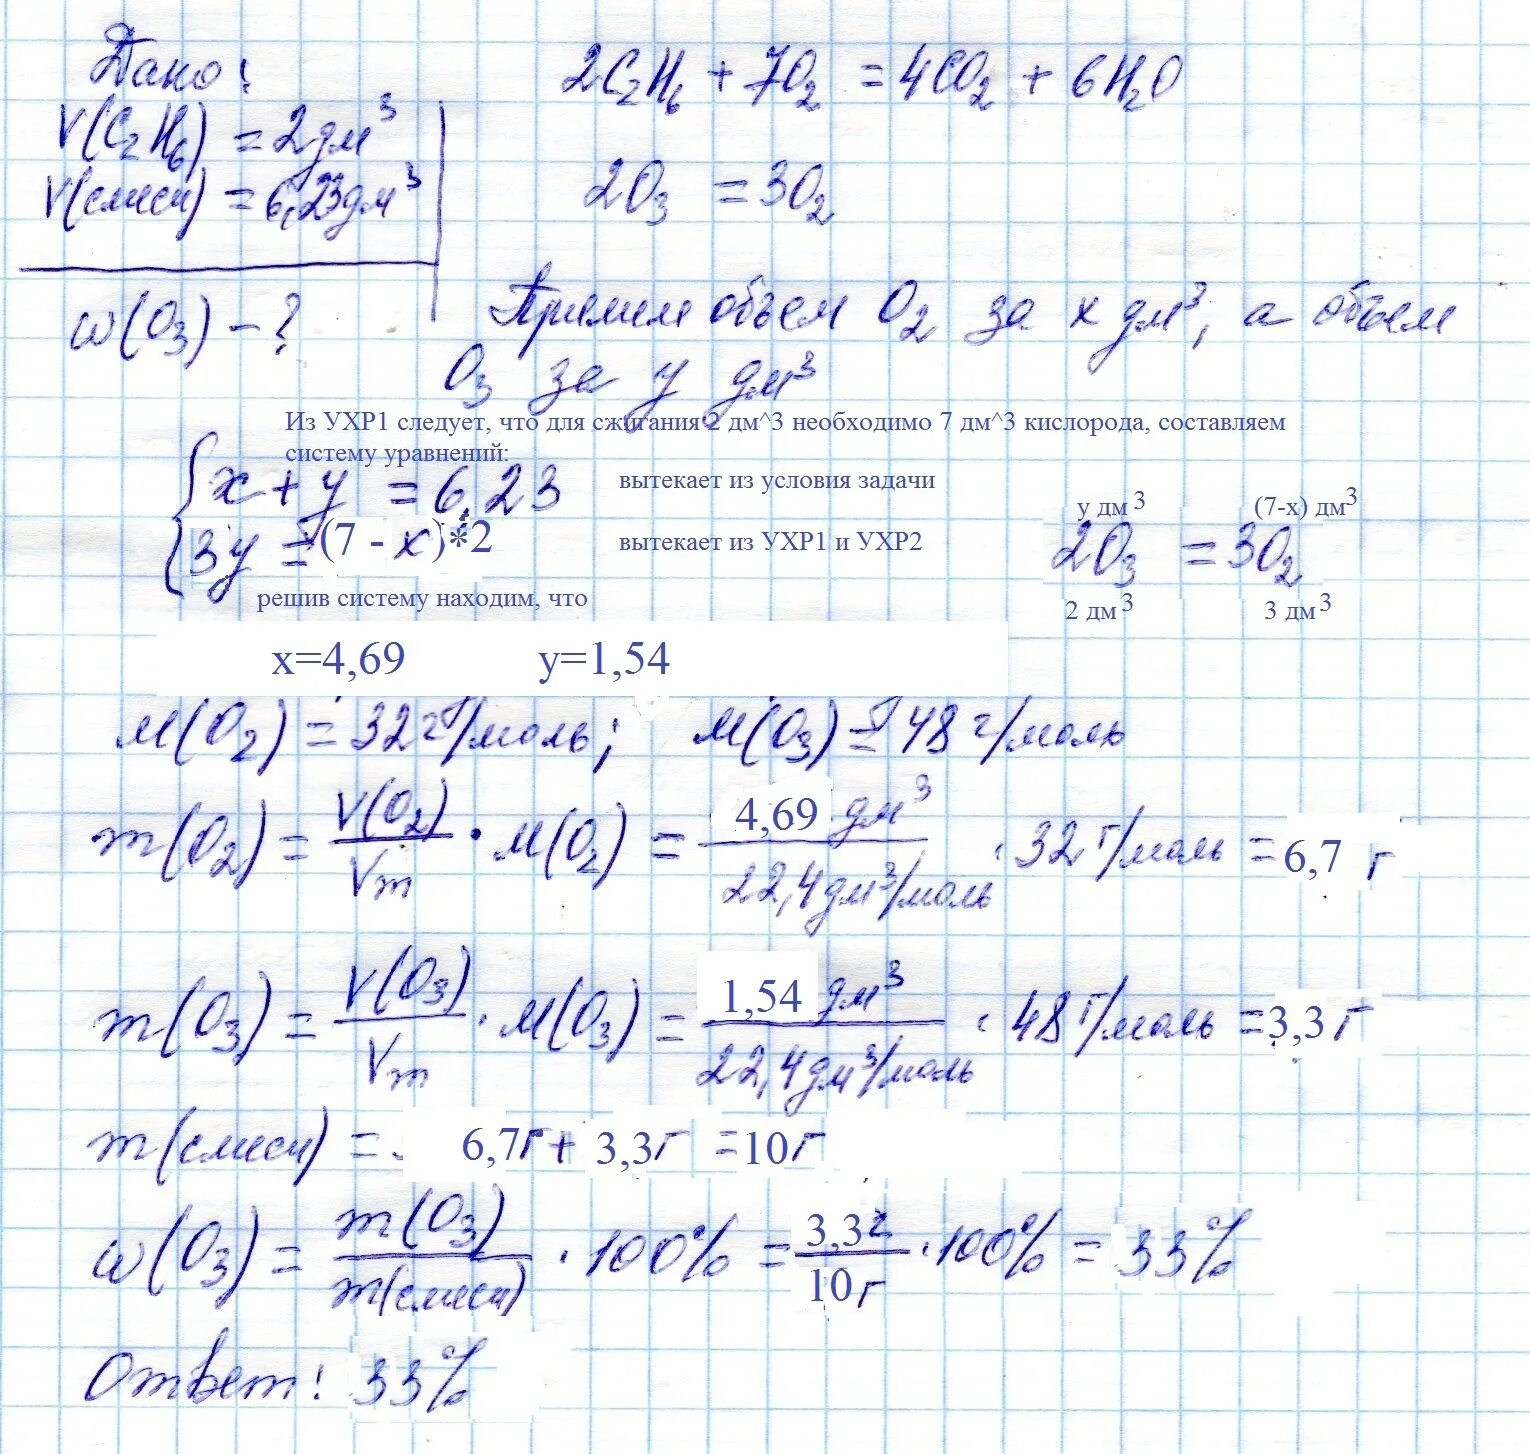 Дано:
2C₂H₆ + 7O₂ = 4CO₂ + 6H₂O
V(C₂H₆) = 2дм³
V(смеси) = 6,23дм³
2O₃ = 3O₂
w(O₃) – ?
Примем объем O₂ за x дм³, а объем
O₃ за y дм³
Из УХР1 следует, что для сжигания 2 дм^3 необходимо 7 дм^3 кислорода, составляем
систему уравнений:
x + y = 6,23 вытекает из условия задачи
у дм³ (7-х) дм³
3y = (7 - x)*2 вытекает из УХР1 и УХР2
2O₃ = 3O₂
2 дм³ 3 дм³
решив систему находим, что
x=4,69 y=1,54
M(O₂) = 32 г/моль; M(O₃) = 48 г/моль
m(O₂) = V(O₂)/Vm · M(O₂) = 4,69 дм³/22,4дм³/моль · 32 г/моль = 6,7 г
m(O₃) = V(O₃)/Vm · M(O₃) = 1,54 дм³/22,4дм³/моль · 48 г/моль = 3,3 г
m(смеси) = 6,7г + 3,3г = 10г
w(O₃) = m(O₃)/m(смеси) · 100% = 3,3г/10г · 100% = 33%
Ответ: 33%